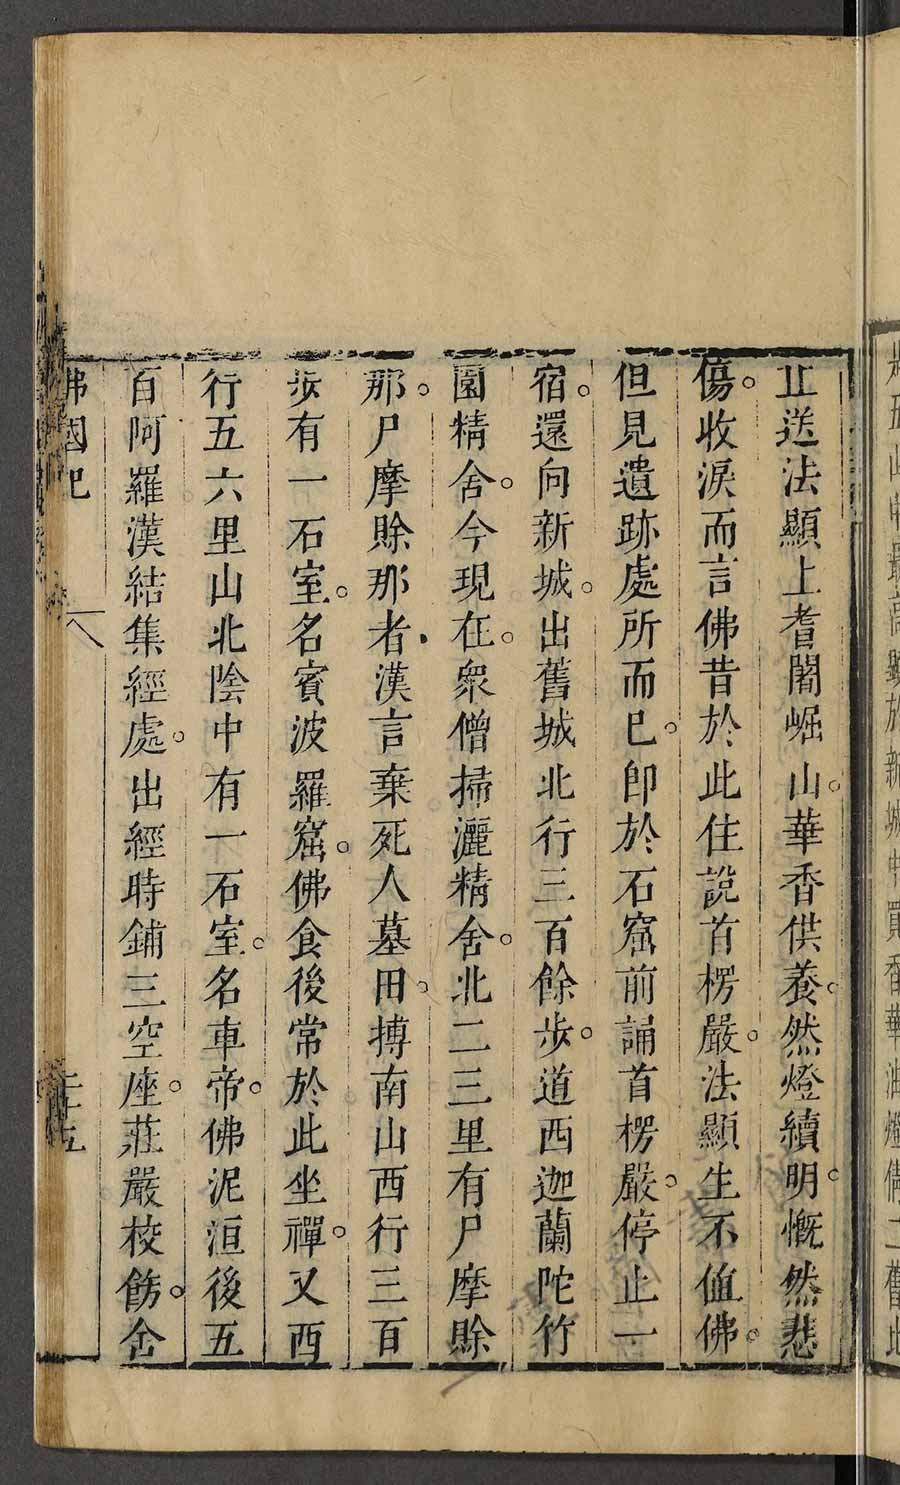 止送法顯上耆闍崛山。華香供養。然燈續明。慨然悲
傷。收淚而言佛昔於此住說首楞嚴。法顯生不値佛。
但見遺跡處所而已。卽於石窟前誦首楞嚴。停止一
宿。還向新城。出舊城北行三百餘步。道西迦蘭陀竹
園精舍。今現在。衆僧掃灑精舍。北二三里有尸摩賖
那。尸摩賖那者.漢言棄死人墓田。搏南山西行三百
步有一石室。名賓波羅窟。佛食後常於此坐禪。又西
行五六里山北陰中有一石室。名車帝。佛泥洹後五
百阿羅漢結集經處。出經時鋪三空座。莊嚴校飭。舍
佛國記